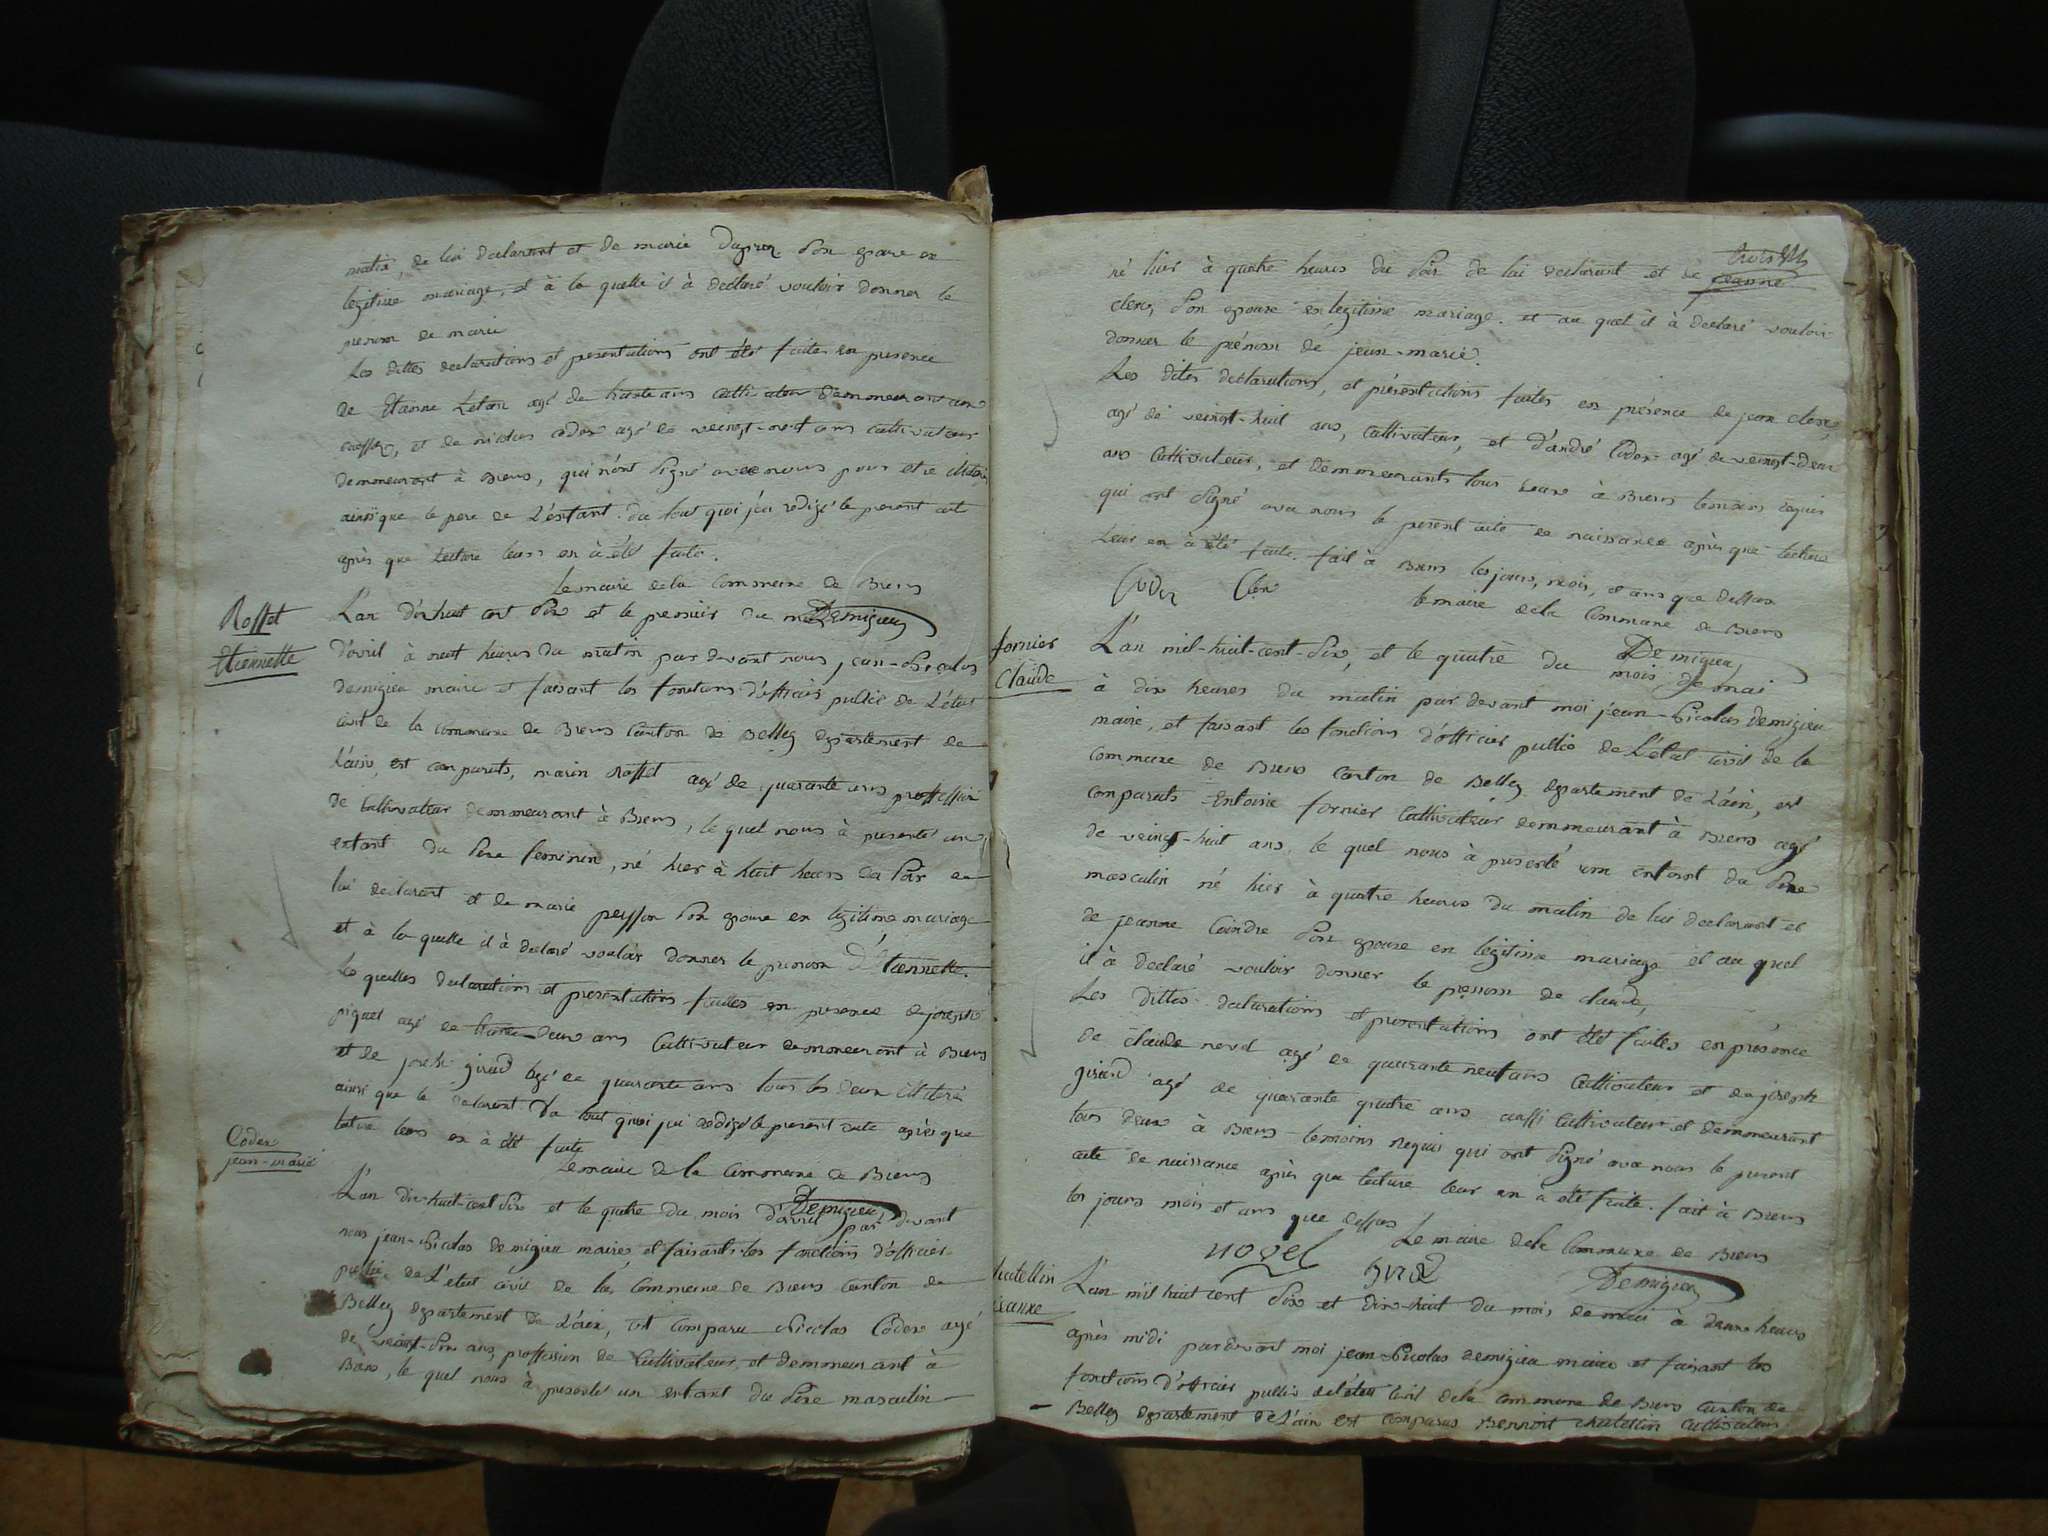 matin, de lui declarant et de marie Duprez son epouse en
legitime mariage, et à la quelle il à declaré vouloir donner le
prenom de marie
Les dittes declarations et presentations ont été faites en presence
de Etienne agé de trente ans cultivateur demmeurant aux
et de nicolas codex agé de veingt-neuf ans cultivateur
demmeurant à Brens, qui n'ont signé avec nous pour etre illiterés
ainsi que le pere de L'enfant. du tout quoi j'ai redigé le present acte
après que lecture leurs en à été faite.
Le maire de la commune de Brens
Demigieu
Roffet
Etiennette
L'an dix huit cent dix et le premier du mois
d'avril à neuf heures du matin par devant nous, jean-Nicolas
demigieu maire et faisant les fonctions d'officier public de L'état
civil de la commune de Brens canton de Belley departement de
L'ain, est comparuts, marin Roffet agé de quarante ans proffession
de cultivateur demmeurant à Brens, le quel nous à presenté un
enfant du sexe feminin, né hier à huit heures du soir de
lui declarant et de marie peysson son epouse en legitime mariage
et à la quelle il à declaré vouloir donner le prenom d'Etiennette.
Les quelles declarations et presentations faittes en presence de joseph
piquet agé de trente-deux ans cultivateur demmeurant à Brens
et de joseph girard agé de quarante ans tous les deux illiterés
ainsi que le declarant. Du tout quoi j'ai redigé le present acte après que
lecture leurs en à été faite
Le maire de la commune de Brens
Demigieu
Codex
jean-marie
L'an dix-huit-cent dix et le quatre du mois d'avril par devant
nous jean-Nicolas demigieu maire et faisants les fonctions d'officier
public de L'état civil de la commune de Brens canton de
Belley departement de L'ain, est comparu Nicolas Codex agé
de veingt-six ans, proffession de cultivateur, et demmeurant à
Brens, le quel nous à presenté un enfant du sexe masculin
né hier à quatre heures du soir de lui declarant et de jeanne
clerc, son epouse en legitime mariage. et au quel il à declaré vouloir
donner le prénom de jean-marie.
Les dites declarations, et présentations faites en présence de jean clerc,
agé de veingt-huit ans, cultivateur, et d'andré Codex agé de veingt-deux
ans cultivateur, et demmeurants tous deux à Brens temoins requis
qui ont signé avec nous le present acte de naissance après que lecture
Leur en à été faite. fait à Brens les jours, mois, et ans que dessus
Codex Clerc le maire de la Commune de Brens
Demigieu
fornier
Claude
L'an mil-huit-cent-dix, et le quatre du mois de mai
à dix heures du matin par devant moi jean-Nicolas demigieu
maire, et faisant les fonctions d'officier public de L'état civil de la
commune de Brens canton de Belley departement de L'ain, est
comparuts Entoine fornier cultivateur demmeurant à Brens agé
de veingt-huit ans, le quel nous à presenté un enfant du sexe
masculin né hier à quatre heures du matin de lui declarant et
de jeanne Caindre son epouse en legitime mariage et au quel
il à declaré vouloir donner le prenom de claude,
Les dittes declarations et presentations ont été faites en présence
de claude novel agé de quarante neuf ans cultivateur et de joseph
girard agé de quarante quatre ans aussi cultivateur et demmeurant
tous deux à Brens temoins requis qui ont signé avec nous le present
acte de naissance après que lecture leur en à été faite. fait à Brens
les jours mois et ans que dessus
Le maire de la Commune de Brens
novel Demigieu
chatellin
jeanne
L'an mil huit cent dix et dix-huit du mois de mai à deux heures
après midi pardevant moi jean-Nicolas demigieu maire et faisant les
fonctions d'officier public de l'état civil de la commune de Brens canton de
Belley departement de L'ain est comparus Bennoit chatellin cultivateur